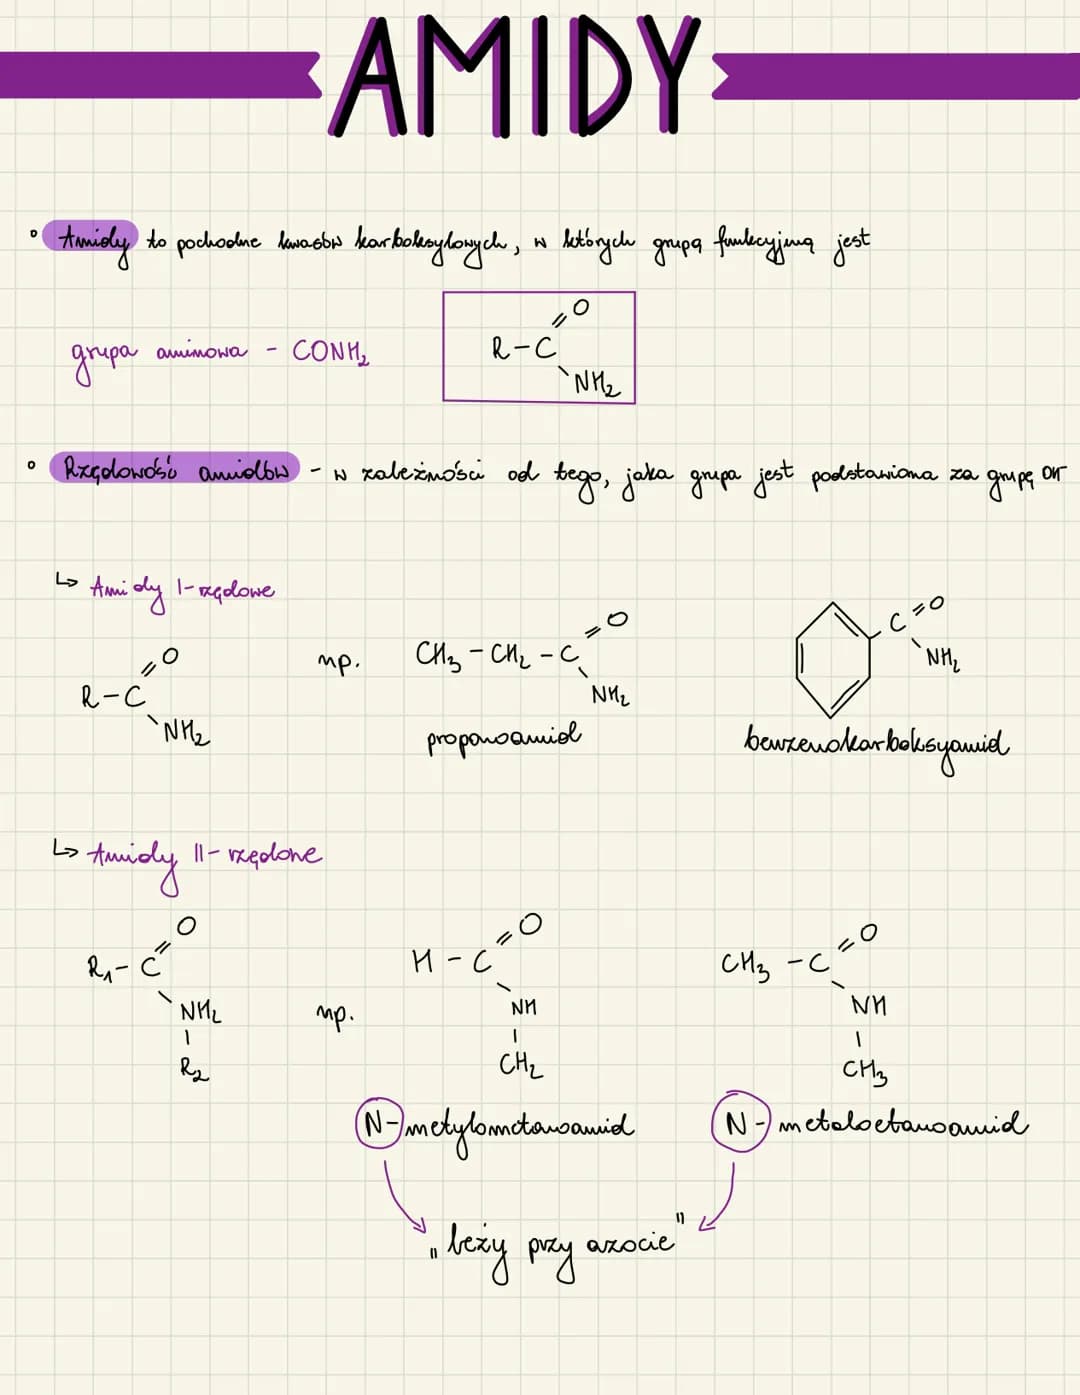 AMIDY
° Amidy to pochodne kwasów karboksylowych, w których grupą funkcyjną jest
grupa aminowa - CONH₂
O
R-C
NH₂
° Rzędowość amidów - w zależności od tego, jaka grupa jest podstawiona za grupę OH
↳ Amidy I-rzędowe
O
R-C
NH₂
np.
O
CH₃ - CH₂ - C
NH₂
propanoamid
C=O
NH₂
benzenokarboksyamid
↳ Amidy II-rzędowe
O
R₁-C
NH₂
R₂
np.
O
H - C
NH
CH₂
N-metylometanoamid
O
CH₃ - C
NH
CH₃
N-metaloetanoamid
„leży przy azocie"